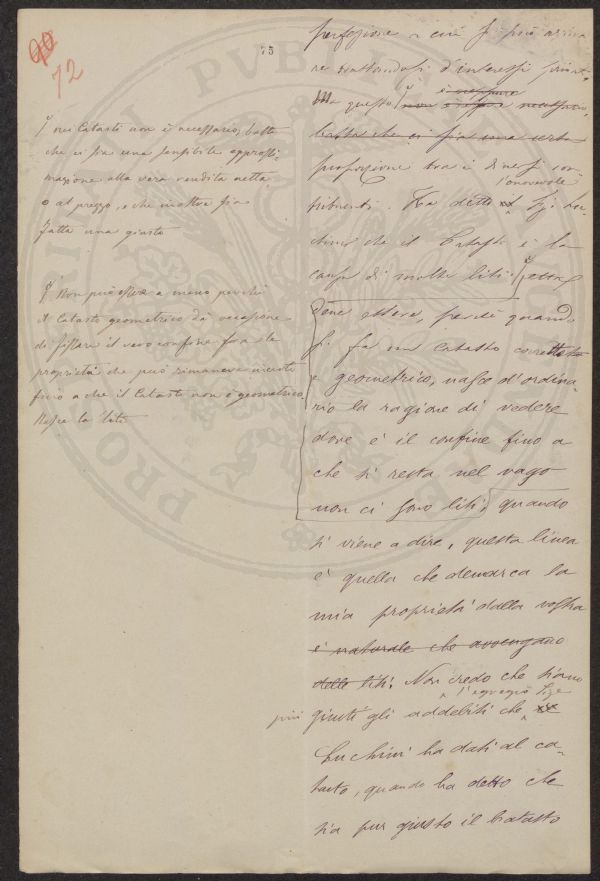 90
72
73
perfezione a cui si può arriva
re trattandosi d'interessi privati,
Ma questo non è necessario,
è nessuna
basta che ci sia una certa
proporzione tra i diversi con-
l'onorevole
tribuenti. Ha detto Sig. Lu-
chini che il Catasto è la
causa di molte liti:
deve essere, perché quando
si fa un Catasto corretto
e geometrico, nasce d'ordina-
rio la ragione di vedere
dove è il confine fino a
che si resta nel vago
non ci sono liti, quando
si viene a dire, questa linea
è quella che demarca la
mia proprietà dalla vostra
è naturale che avvengano
delle liti. Non credo che siano
l'egregio Sig.
più giusti gli addebiti che
Luchini ha dati al ca-
tasto, quando ha detto che
sia pur giusto il Catasto
nei Catasti non è necessario, basta
che ci sia una sensibile approssi-
mazione alla vera rendita netta
o al prezzo, e che inoltre sia
fatta una giusta
Non può essere a meno perché
il Catasto geometrico dà occasione
di fissare il vero confine fra le
proprietà che può rimanere incerto
fino a che il Catasto non è geometrico.
Nasce la lite
PUBBLI
PRO